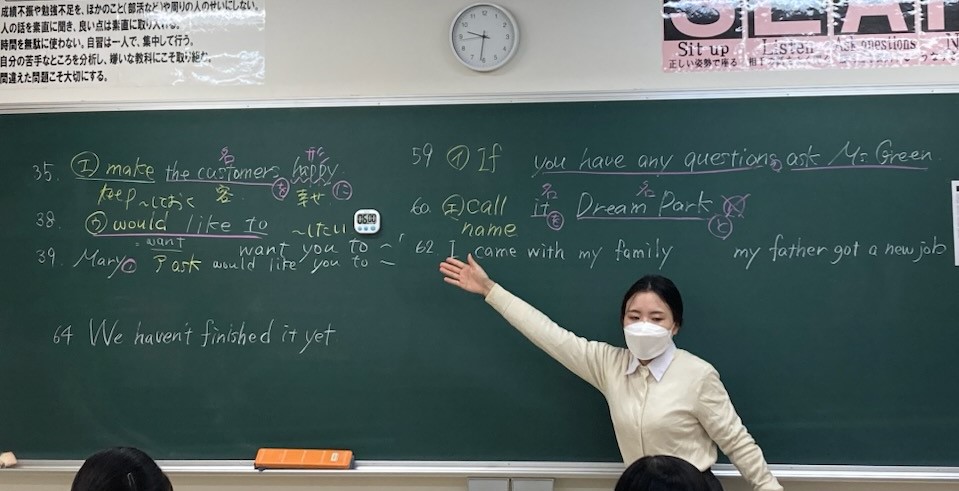 成績不振や勉強不足を、ほかのこと(部活など)や周りの人のせいにしない。
人の話を素直に聞き、良い点は素直に取り入れる。
時間を無駄に使わない。自習は一人で、集中して行う。
自分の苦手なところを分析し、嫌いな教科にこそ取り組む。
間違えた問題こそ大切にする。
Sit up Listen Ask questions
正しい姿勢で座る
名 形
35. エ make the customers happy
を に
keep ~しておく 客 幸せ
38. ウ would like to ~したい
05:00
= want want you to ~
39. Mary ask would like you to ~
64 We haven't finished it yet
59 イ If you have any questions, ask Ms Green.
名 名
60. エ call it Dream Park
を と
name
62 I came with my family my father got a new job